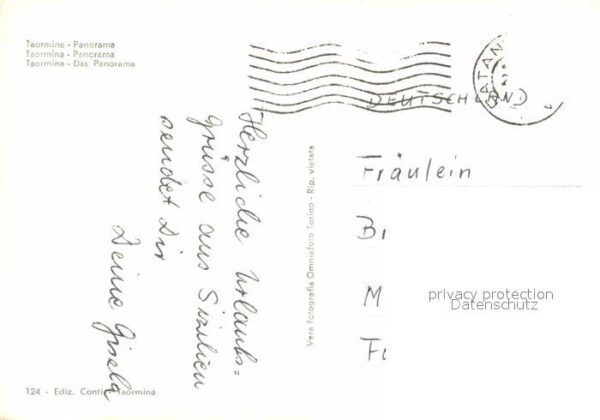 Taormine - Panorama
Taormina - Panorama
Taormina - Das Panorama
CATAN
DEUTSCHLAND
Herzliche Urlaubs=
grüsse aus Sizilien
sendet Dir
Deine Gisela
Vera fotografia Omniafoto Torino - Rip. vietata
Fräulein
B
M
F
privacy protection
Datenschutz
124 - Ediz. Conti - Taormina